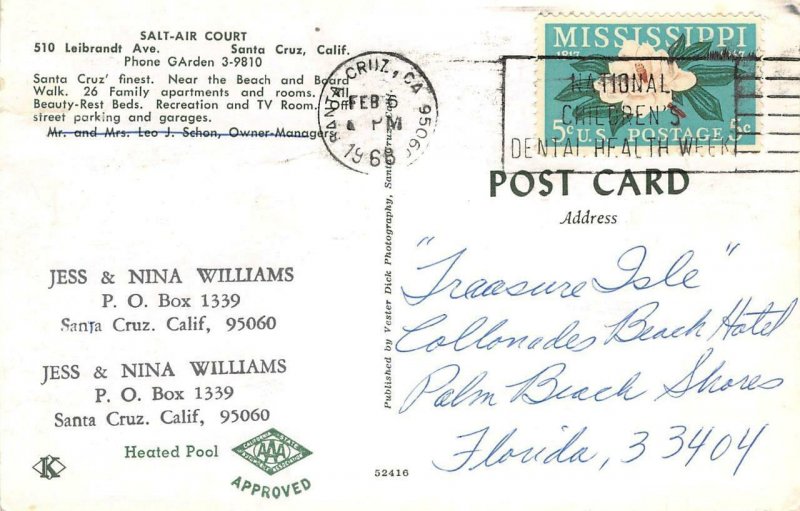 SALT-AIR COURT
510 Leibrandt Ave. Santa Cruz, Calif.
Phone GArden 3-9810
Santa Cruz' finest. Near the Beach and Board
Walk. 26 Family apartments and rooms. All
Beauty-Rest Beds. Recreation and TV Room. Off
street parking and garages.
Mr. and Mrs. Leo J. Schon, Owner-Managers
SANTA CRUZ, CA 95060
FEB 6
PM
1968
MISSISSIPPI
1817 1967
5c U.S. POSTAGE 5c
NATIONAL
CHILDREN'S
DENTAL HEALTH WEEK
POST CARD
Address
"Treasure Isle"
Collonades Beach Hotel
Palm Beach Shores
Florida, 33404
Published by Vester Dick Photography, Santa Cruz, Calif.
JESS & NINA WILLIAMS
P. O. Box 1339
Santa Cruz. Calif, 95060
JESS & NINA WILLIAMS
P. O. Box 1339
Santa Cruz. Calif, 95060
Heated Pool
CALIFORNIA STATE
AAA
APPROVED
K
52416